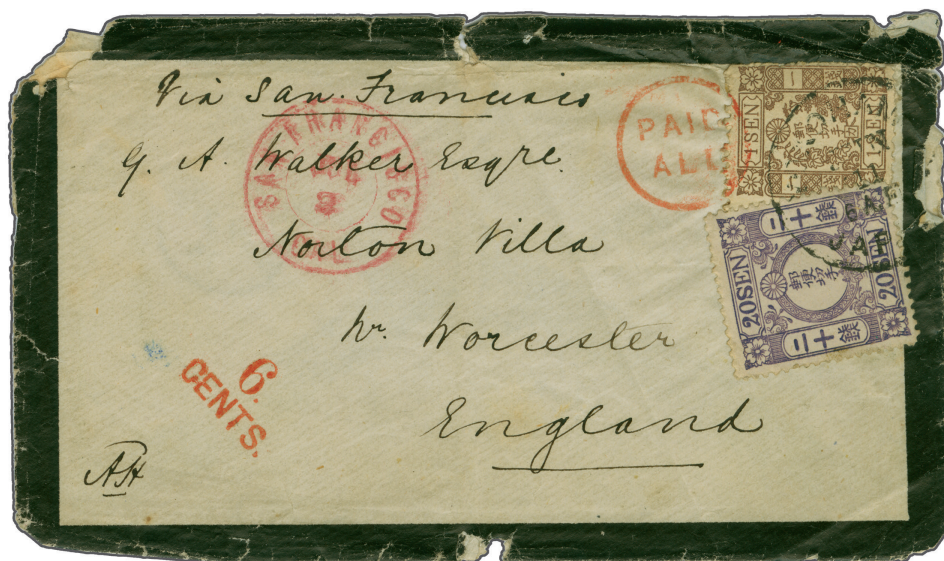 Via San Francisco
G. A. Walker Esqre
Norton Villa
Nr. Worcester
England
AH
SAN FRANCISCO
CAL
PAID
ALL
6.
CENTS.
1 SEN
1 SEN
郵便切手
20 SEN
20 SEN
二十銭
郵便切手
二十銭
JAP